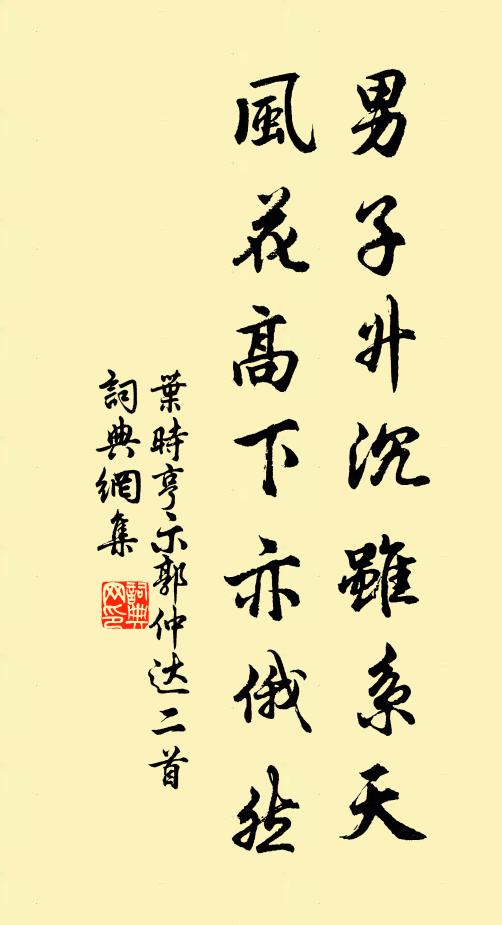 男子升沉雖系天
風花高下亦俄然
葉時亨示郭仲达二首
詞典網集
詞典
网印